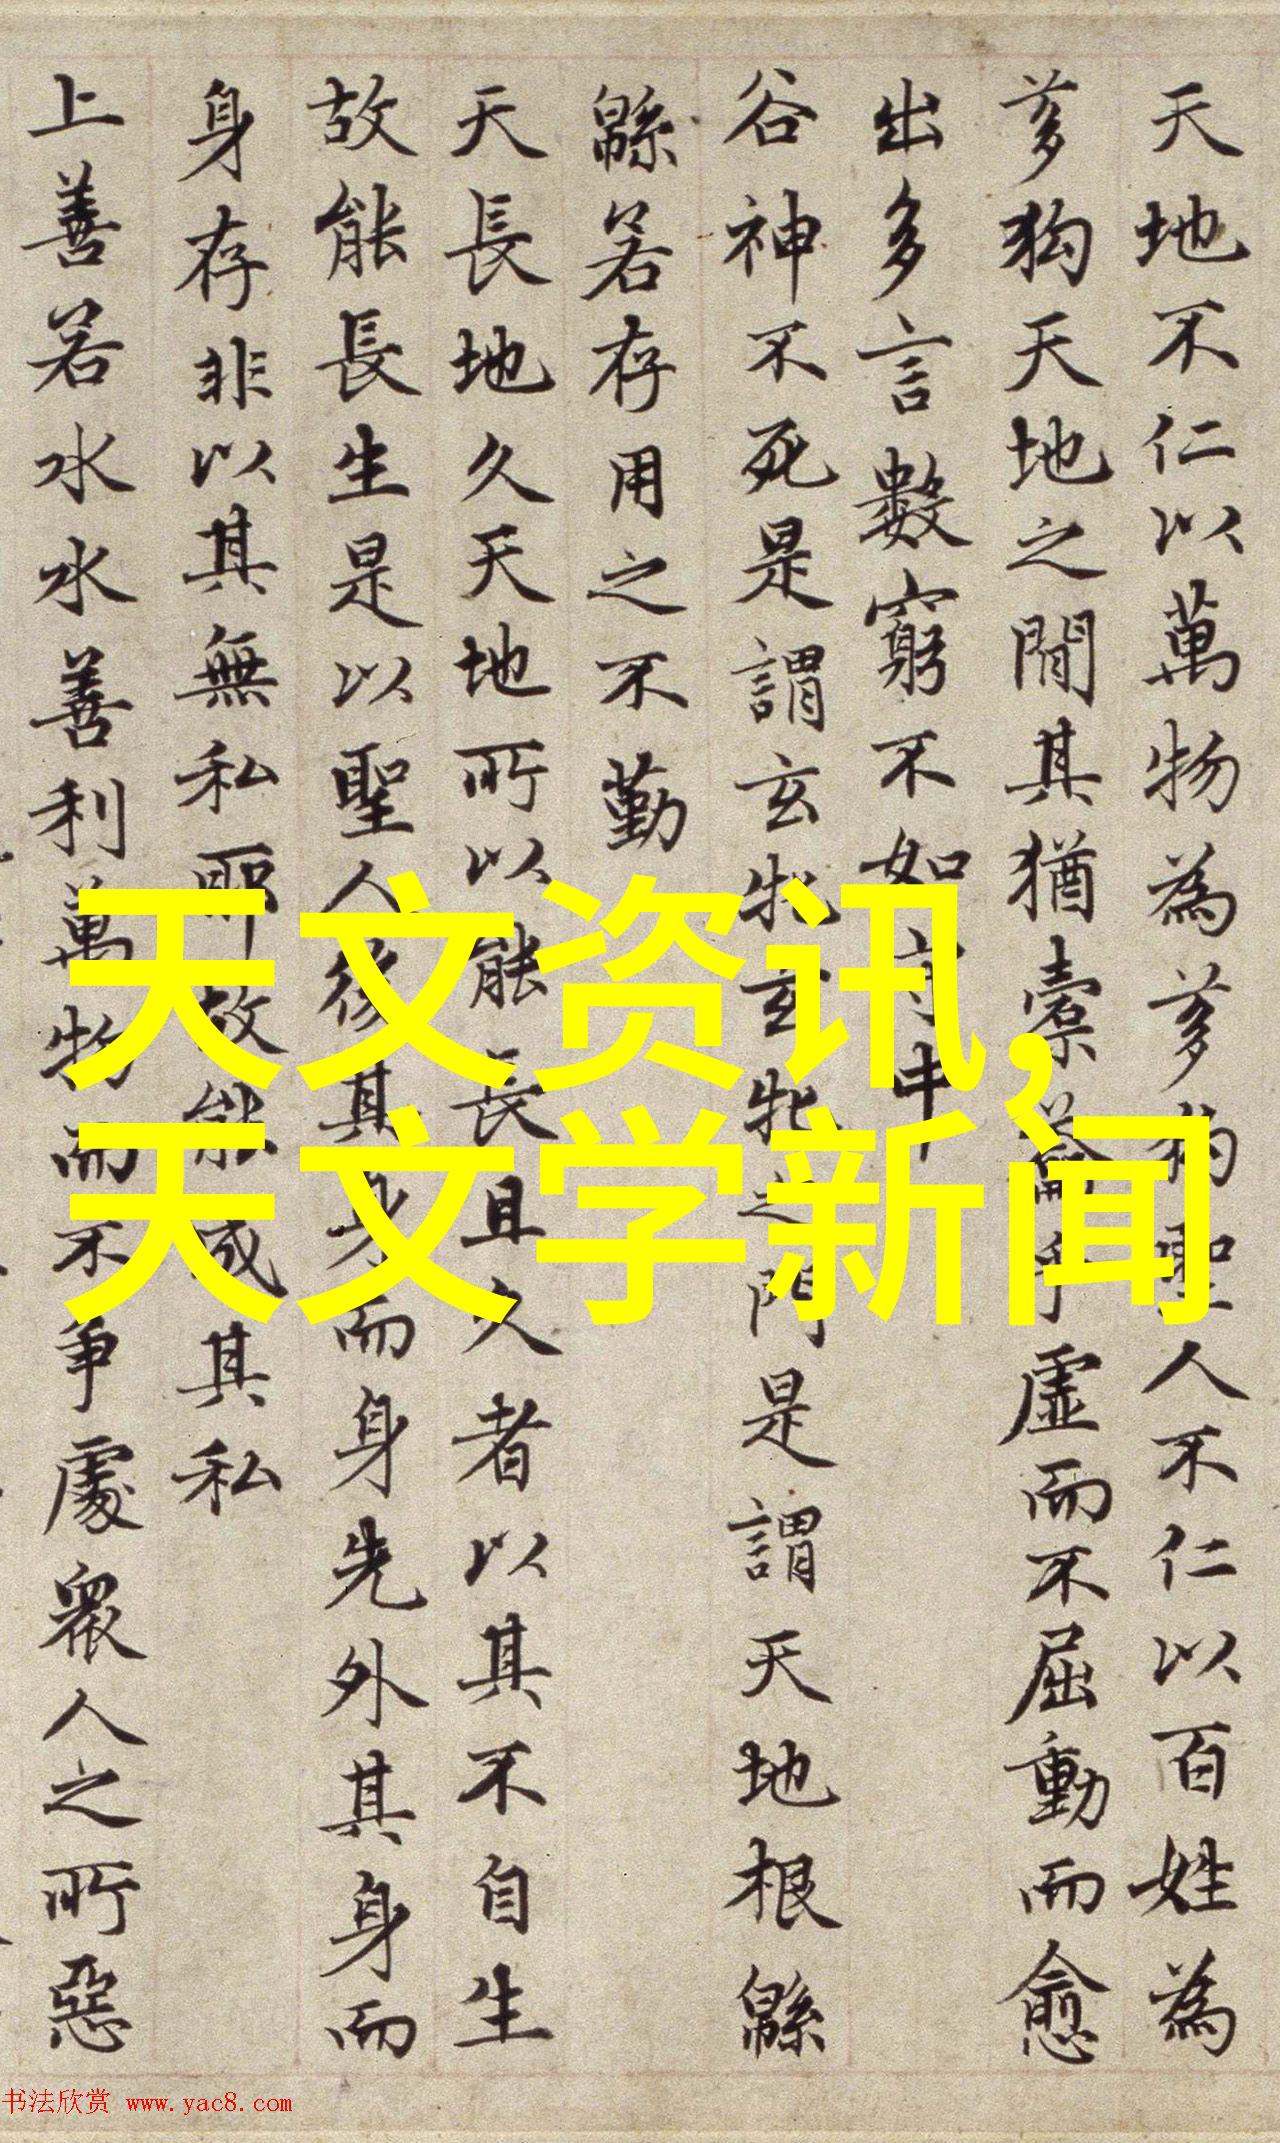 天地不仁以萬物為芻狗聖人不仁以百姓為
芻狗天地之間其猶橐籥乎虛而不屈動而愈
出多言數窮不如守中
谷神不死是謂玄牝玄牝之門是謂天地根緜
緜若存用之不勤
天長地久天地所以能長且久者以其不自生
故能長生是以聖人後其身而身先外其身而
身存非以其無私耶故能成其私
上善若水水善利萬物而不爭處衆人之所惡
天文资讯,
天文学新闻
书法欣赏 www.yac8.com